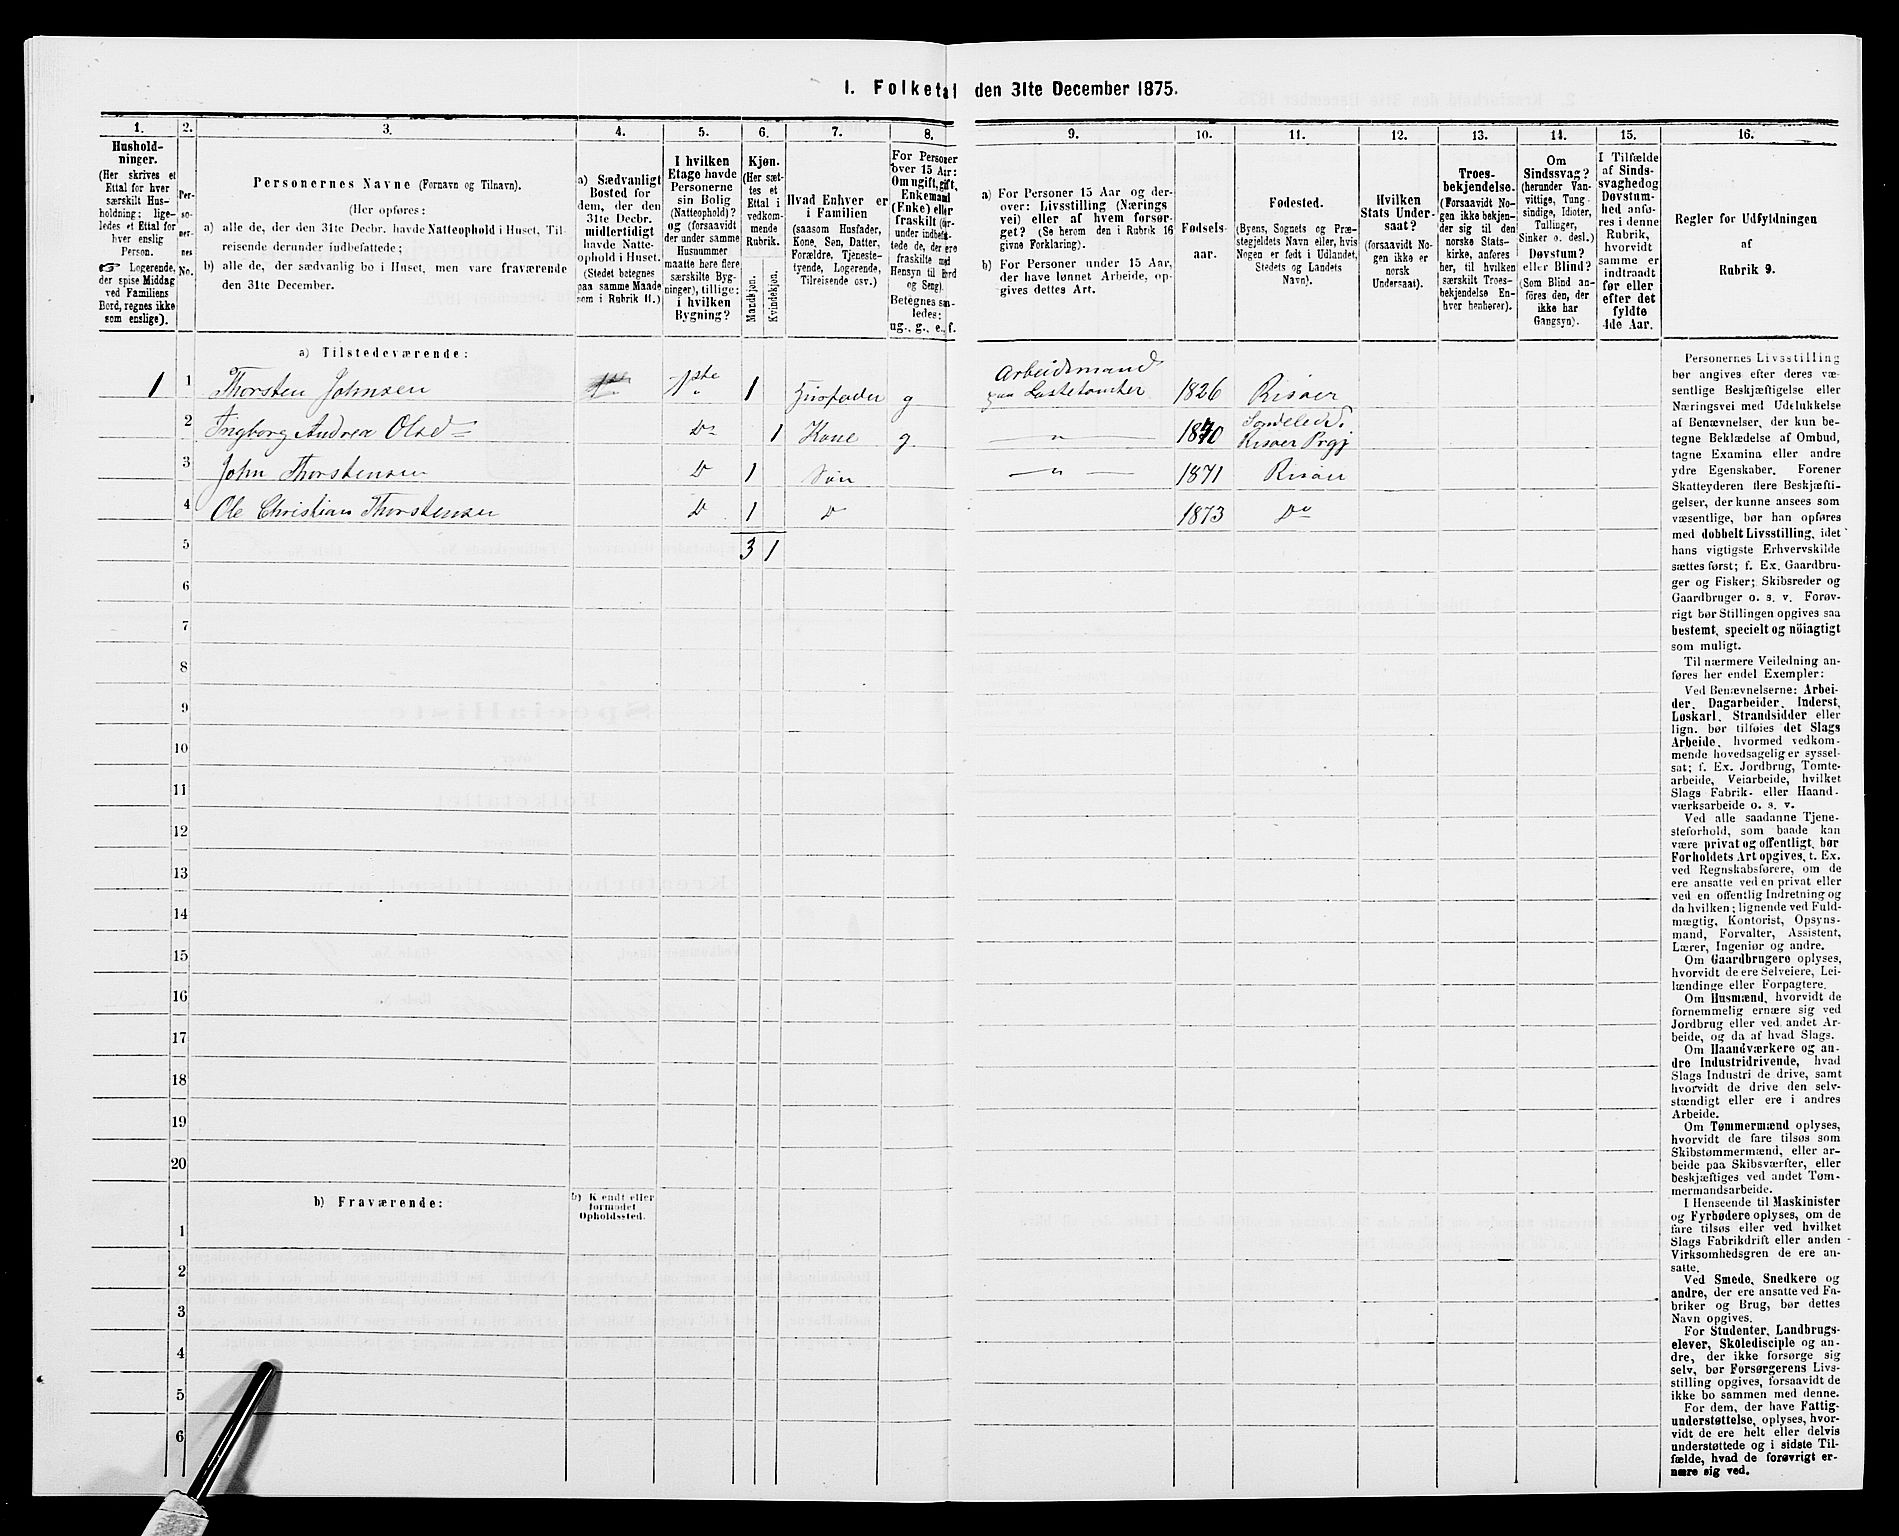 1. Folketal den 31te December 1875.
1.
2.
3.
4.
5.
6.
7.
8.
9.
10.
11.
12.
13.
14.
15.
16.
Hushold-
ninger.
(Her skrives et
Ettal for hver
særskilt Hus-
holdning; lige-
ledes et Ettal for
hver enslig
Person.
☞ Logerende,
der spise Middag
ved Familiens
Bord, regnes ikke
som enslige).
Per-
so-
ner-
nes
No.
Personernes Navne (Fornavn og Tilnavn).
(Her opføres:
a) alle de, der den 31te Decbr. havde Natteophold i Huset, Til-
reisende derunder indbefattede;
b) alle de, der sædvanlig bo i Huset, men vare fraværende
den 31te December.
a) Sædvanligt
Bosted for
dem, der den
31te Decbr.
midlertidigt
havde Natte-
ophold i Huset.
(Stedet betegnes
paa samme Maade
som i Rubrik 11.)
I hvilken
Etage havde
Personerne
sin Bolig
(Natteophold)?
og (forsaavidt
der under samme
Husnummer
maatte høre flere
særskilte Byg-
ninger), tillige:
i hvilken
Bygning?
Kjøn.
(Her sæt-
tes et
Ettal i
vedkom-
mende
Rubrik.
Mandkjøn.
Kvindekjøn.
Hvad Enhver er
i Familien
(saasom Husfader,
Kone, Søn, Datter,
Forældre, Tjeneste-
tyende, Logerende,
Tilreisende osv.)
For Personer
over 15 Aar:
Om ugift, gift,
Enkemand
(Enke) eller
fraskilt (der-
under indbefat-
tede de, der ere
fraskilte med
Hensyn til Bord
og Seng).
Betegnes saa-
ledes:
ug., g., e., f.
a) For Personer 15 Aar og der-
over: Livsstilling (Nærings-
vei) eller af hvem forsør-
get? (Se herom den i Rubrik 16
givne Forklaring).
b) For Personer under 15 Aar,
der have lønnet Arbeide, op-
gives dettes Art.
Fødsels-
aar.
Fødested.
(Byens, Sognets og Præ-
stegjeldets Navn eller, hvis
Nogen er født i Udlandet,
Stedets og Landets
Navn).
Hvilken
Stats Under-
saat?
(forsaavidt No-
gen ikke er
norsk
Undersaat).
Troes-
bekjendelse.
(Forsaavidt No-
gen ikke bekjen-
der sig til den
norske Stats-
kirke, anføres
her, til hvilken
særskilt Troes-
bekjendelse En-
hver henhører).
Om
Sindssvag?
(herunder Van-
vittige, Tung-
sindige, Idioter,
Tullinger,
Sinker o. desl.)
Døvstum?
eller Blind?
(Som Blind an-
føres den, der
ikke har
Gangsyn).
I Tilfælde
af Sinds-
svaghed og
Døvstum-
hed anfø-
res i denne
Rubrik,
hvorvidt
samme er
indtraadt
før eller
efter det
fyldte
4de Aar.
Regler for Udfyldningen
af
Rubrik 9.
a) Tilstedeværende:
1 1 Thorsten Johnsen 1ste 1 Husfader g Arbeidsmand
paa Lastetomter 1826 Risøer
2 Ingborg Andrea Olsd= Do 1 Kone g — " — 1840 Søndeled i
Risøer Prgj
3 John Thorstensen D 1 Søn — " — 1871 Risøer
4 Ole Christian Thorstensen D 1 D 1873 Do
5 3 1
6
7
8
9
10
11
12
13
14
15
16
17
18
19
20
b) Fraværende:
b) Kjendt eller
formodet
Opholdssted.
1
2
3
4
5
6
Personernes Livsstilling
bør angives efter deres væ-
sentlige Beskjæftigelse eller
Næringsvei med Udelukkelse
af Benævnelser, der kun be-
tegne Beklædelse af Ombud,
tagne Examina eller andre
ydre Egenskaber. Forener
Skatteyderen flere Beskjæfti-
gelser, der kunne ansees som
væsentlige, bør han opføres
med dobbelt Livsstilling, idet
hans vigtigste Erhvervskilde
sættes først; f. Ex. Gaardbru-
ger og Fisker; Skibsreder og
Gaardbruger o. s. v. Forøv-
rigt bør Stillingen opgives saa
bestemt, specielt og nöiagtigt
som muligt.
Til nærmere Veiledning an-
føres her endel Exempler:
Ved Benævnelserne: Arbei-
der, Dagarbeider, Inderst,
Løskarl, Strandsidder eller
lign. bør tilføies det Slags
Arbeide, hvormed vedkom-
mende hovedsagelig er syssel-
sat; f. Ex. Jordbrug, Tomte-
arbeide, Veiarbeide, hvilket
Slags Fabrik- eller Haand-
værksarbeide o. s. v.
Ved alle saadanne Tjene-
steforhold, som baade kan
være privat og offentligt, bør
Forholdets Art opgives, t. Ex.
ved Regnskabsførere, om de
ere ansatte ved en privat eller
ved en offentlig Indretning og
da hvilken; lignende ved Fuld-
mægtig, Kontorist, Opsyns-
mand, Forvalter, Assistent,
Lærer, Ingeniør og andre.
Om Gaardbrugere oplyses,
hvorvidt de ere Selveiere, Lei-
lændinge eller Forpagtere.
Om Husmænd, hvorvidt de
fornemmelig ernære sig ved
Jordbrug eller ved andet Ar-
beide, og da af hvad Slags.
Om Haandværkere og an-
dre Industridrivende, hvad
Slags Industri de drive, samt
hvorvidt de drive den selv-
stændigt eller ere i andres
Arbeide.
Om Tømmermænd oplyses,
hvorvidt de fare tilsøs som
Skibstømmermænd, eller ar-
beide paa Skibsværfter, eller
beskjæftiges ved andet Tøm-
mermandsarbeide.
I Henseende til Maskinister
og Fyrbødere oplyses, om de
fare tilsøs eller ved hvilket
Slags Fabrikdrift eller anden
Virksomhedsgren de ere an-
satte.
Ved Smede, Snedkere og
andre, der ere ansatte ved Fa-
briker og Brug, bør dettes
Navn opgives.
For Studenter, Landbrugs-
elever, Skoledisciple og an-
dre, der ikke forsørge sig
selv, bør Forsørgerens Livs-
stilling opgives, forsaavidt de
ikke bo sammen med denne.
For dem, der have Fattig-
understøttelse, oplyses, hvor-
vidt de ere helt eller delvis
understøttede og i sidste Til-
fælde, hvad de forøvrigt er-
nære sig ved.